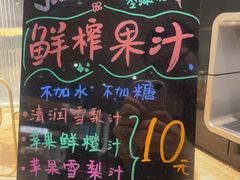 鲜榨果汁
不加水 不加糖
·清润雪梨汁
·苹果鲜橙汁
·苹果雪梨汁
10元